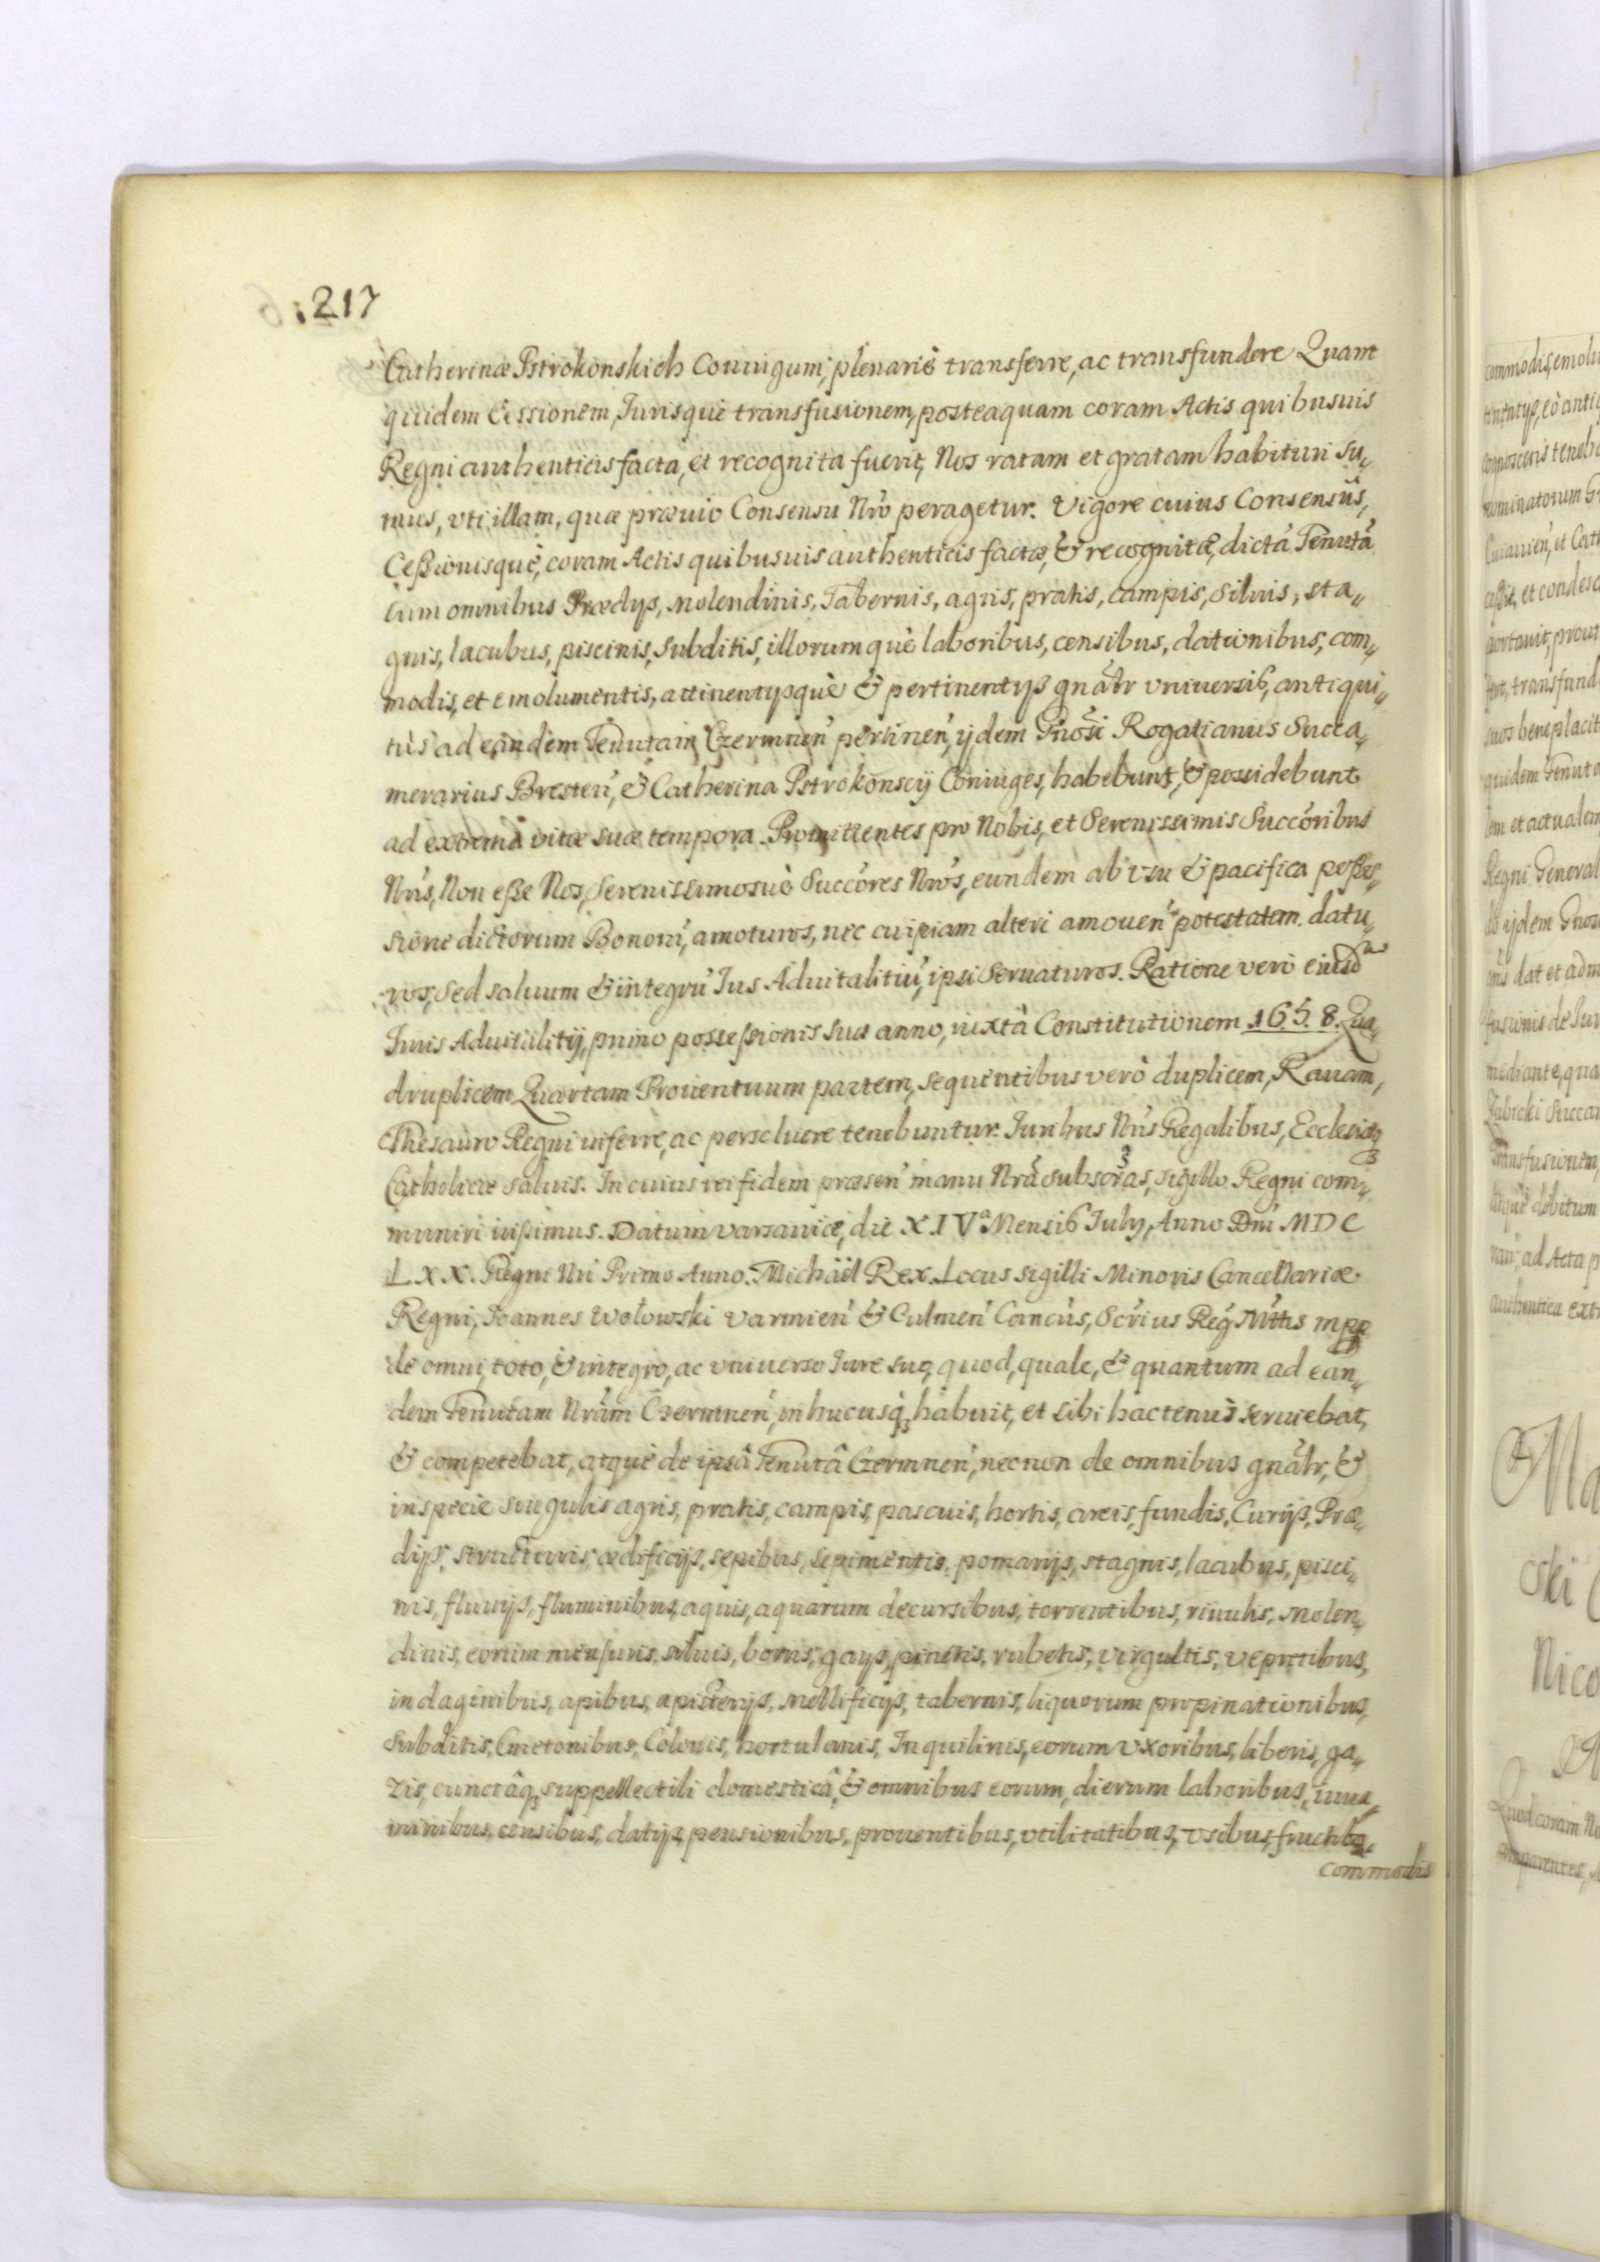 :217
Catherinæ Pstrokonskich Coniugum, plenariè transferre, ac transfundere Quam
quidem Cessionem, Jurisquè transfusionem, posteaquam coram Actis quibusuis
Regni authenticis facta, et recognita fuerit, Nos ratam et gratam habituri su„
mus, vti illam, quæ præuio Consensu Nrô peragetur. Vigore cuius Consensûs,
Ceßionisquè, coram Actis quibusuis authenticis factæ, & recognitæ, dictã Tenutã
cum omnibus Prædijs, molendinis, Tabernis, agris, pratis, campis, siluis, sta„
gnis, lacubus, piscinis, subditis, illorumquè laboribus, censibus, dationibus, com„
modis, et emolumentis, attinentijsquè & pertinentijs gnãlr vniuersis, antiqui„
tùs ad eandem Tenutam Czermnen̄ pertinen̄, ijdem Gnosi Rogatianus Succa„
merarius Bresten̄, & Catherina Pstrokonscij Coniuges, habebunt, & possidebunt
ad extrema vitæ suæ tempora. Promittentes pro Nobis, et Serenissimis Succoribus
Nrĩs, Non eße Nos, Serenissimosuè Succores Nrõs, eundem ab vsu & pacifica poßes„
sione dictorum Bonorũ, amoturos, nec cuipiam alteri amouen̄ potestatem datu„
ros, sed saluum & integrũ Jus Aduitalitiũ, ipsi seruaturos. Ratione verò eiusd
Juris Aduitalitij, primo possessionis suæ anno, iuxtà Constitutionem 1658. Qua„
druplicem Quartam Prouentuum partem, sequentibus verò duplicem, Rauam,
Thesauro Regni inferre, ac persoluere tenebuntur. Juribus Nrĩs Regalibus, Ecclesiæq3
Catholicæ saluis. In cuius rei fidem præsen̄ manu Nrã subscras, sigillo Regni com„
muniri iussimus. Datum Varsaviæ, die XIVa Mensis July, Anno Dnĩ MDC
LXX. Regni Nrĩ Primo Anno. Michaël Rex. Locus sigilli Minoris Cancellariæ
Regni, Joannes Wołowski Varmien̄ & Culmen̄ Cancus, Scrius Reg Mttis mpp
de omni, toto, & integro, ac vniuerso Jure suo, quod, quale, & quantum ad ean„
dem Tenutam Nrãm Czermnen̄, in hucusq3 habuit, et sibi hactenus seruiebat,
& competebat, atquè de ipsâ Tenutâ Czermnen̄, necnon de omnibus gnãlr, &
in specie singulis agris, pratis, campis, pascuis, hortis, areis, fundis, Curijs, Præ„
dijs, structuris, ædificijs, sepibus, sepimentis, pomarijs, stagnis, lacubus, pisci„
nis, fluuijs, fluminibus, aquis, aquarum decursibus, torrentibus, riuulis, molen„
dinis, eorum mensuris, siluis, borris, gays, pinetis, rubetis, virgultis, vepribus,
indaginibus, apibus, apisterijs, mellificijs, tabernis, liquorum propinationibus,
Subditis, Cmetonibus, Colonis, hortulanis, Inquilinis, eorum vxoribus, liberis, ga„
zis, cunctâq3 suppellectili domesticâ, & omnibus eorum, dierum laboribus, iuua„
minibus, censibus, datijs, pensionibus, prouentibus, vtilitatibus, vsibus, fructibus,
commodis